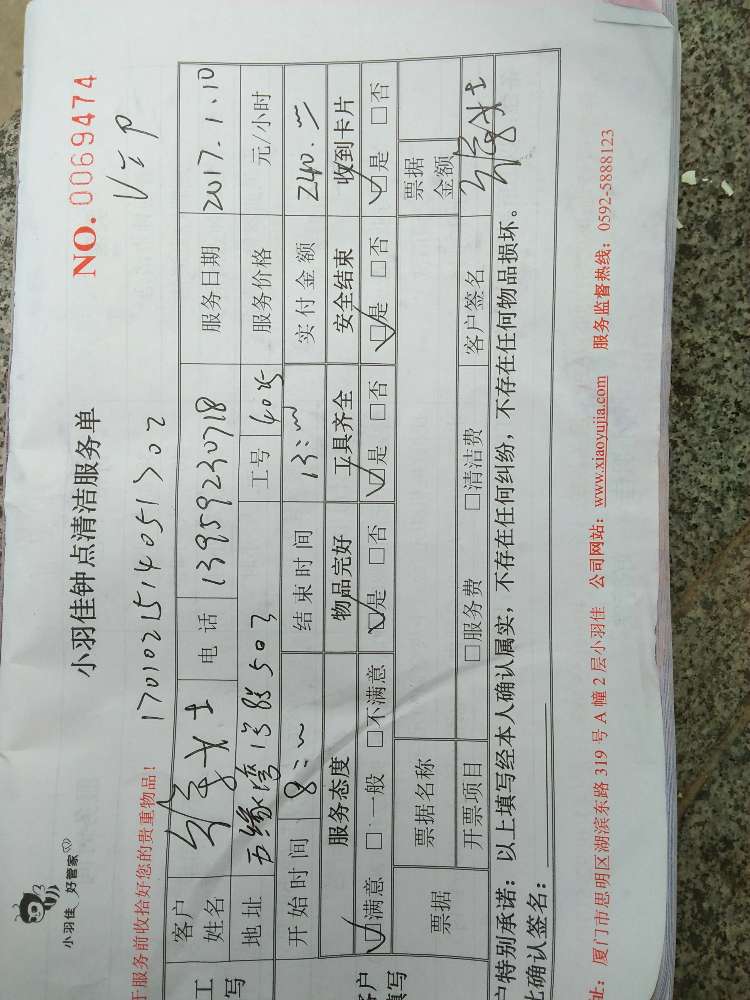 小羽佳 好管家
小羽佳钟点清洁服务单
NO. 0069474
于服务前收拾好您的贵重物品！
1701021514051702
VIP
客户姓名 女士 电话 13959230718 服务日期 2017.1.10
地址 五缘湾 503 工号 服务价格 元/小时
开始时间 8: 结束时间 13: 实付金额 240.
服务态度 物品完好 工具齐全 安全结束 收到卡片
☑满意 □一般 □不满意 ☑是 □否 ☑是 □否 ☑是 □否 ☑是 □否
票据 票据名称 票据金额
开票项目 □服务费 □清洁费 客户签名 女士
户特别承诺：以上填写经本人确认属实，不存在任何纠纷，不存在任何物品损坏。
比确认签名：
址：厦门市思明区湖滨东路 319 号 A 幢 2 层小羽佳 公司网站：www.xiaoyujia.com 服务监督热线：0592-5888123